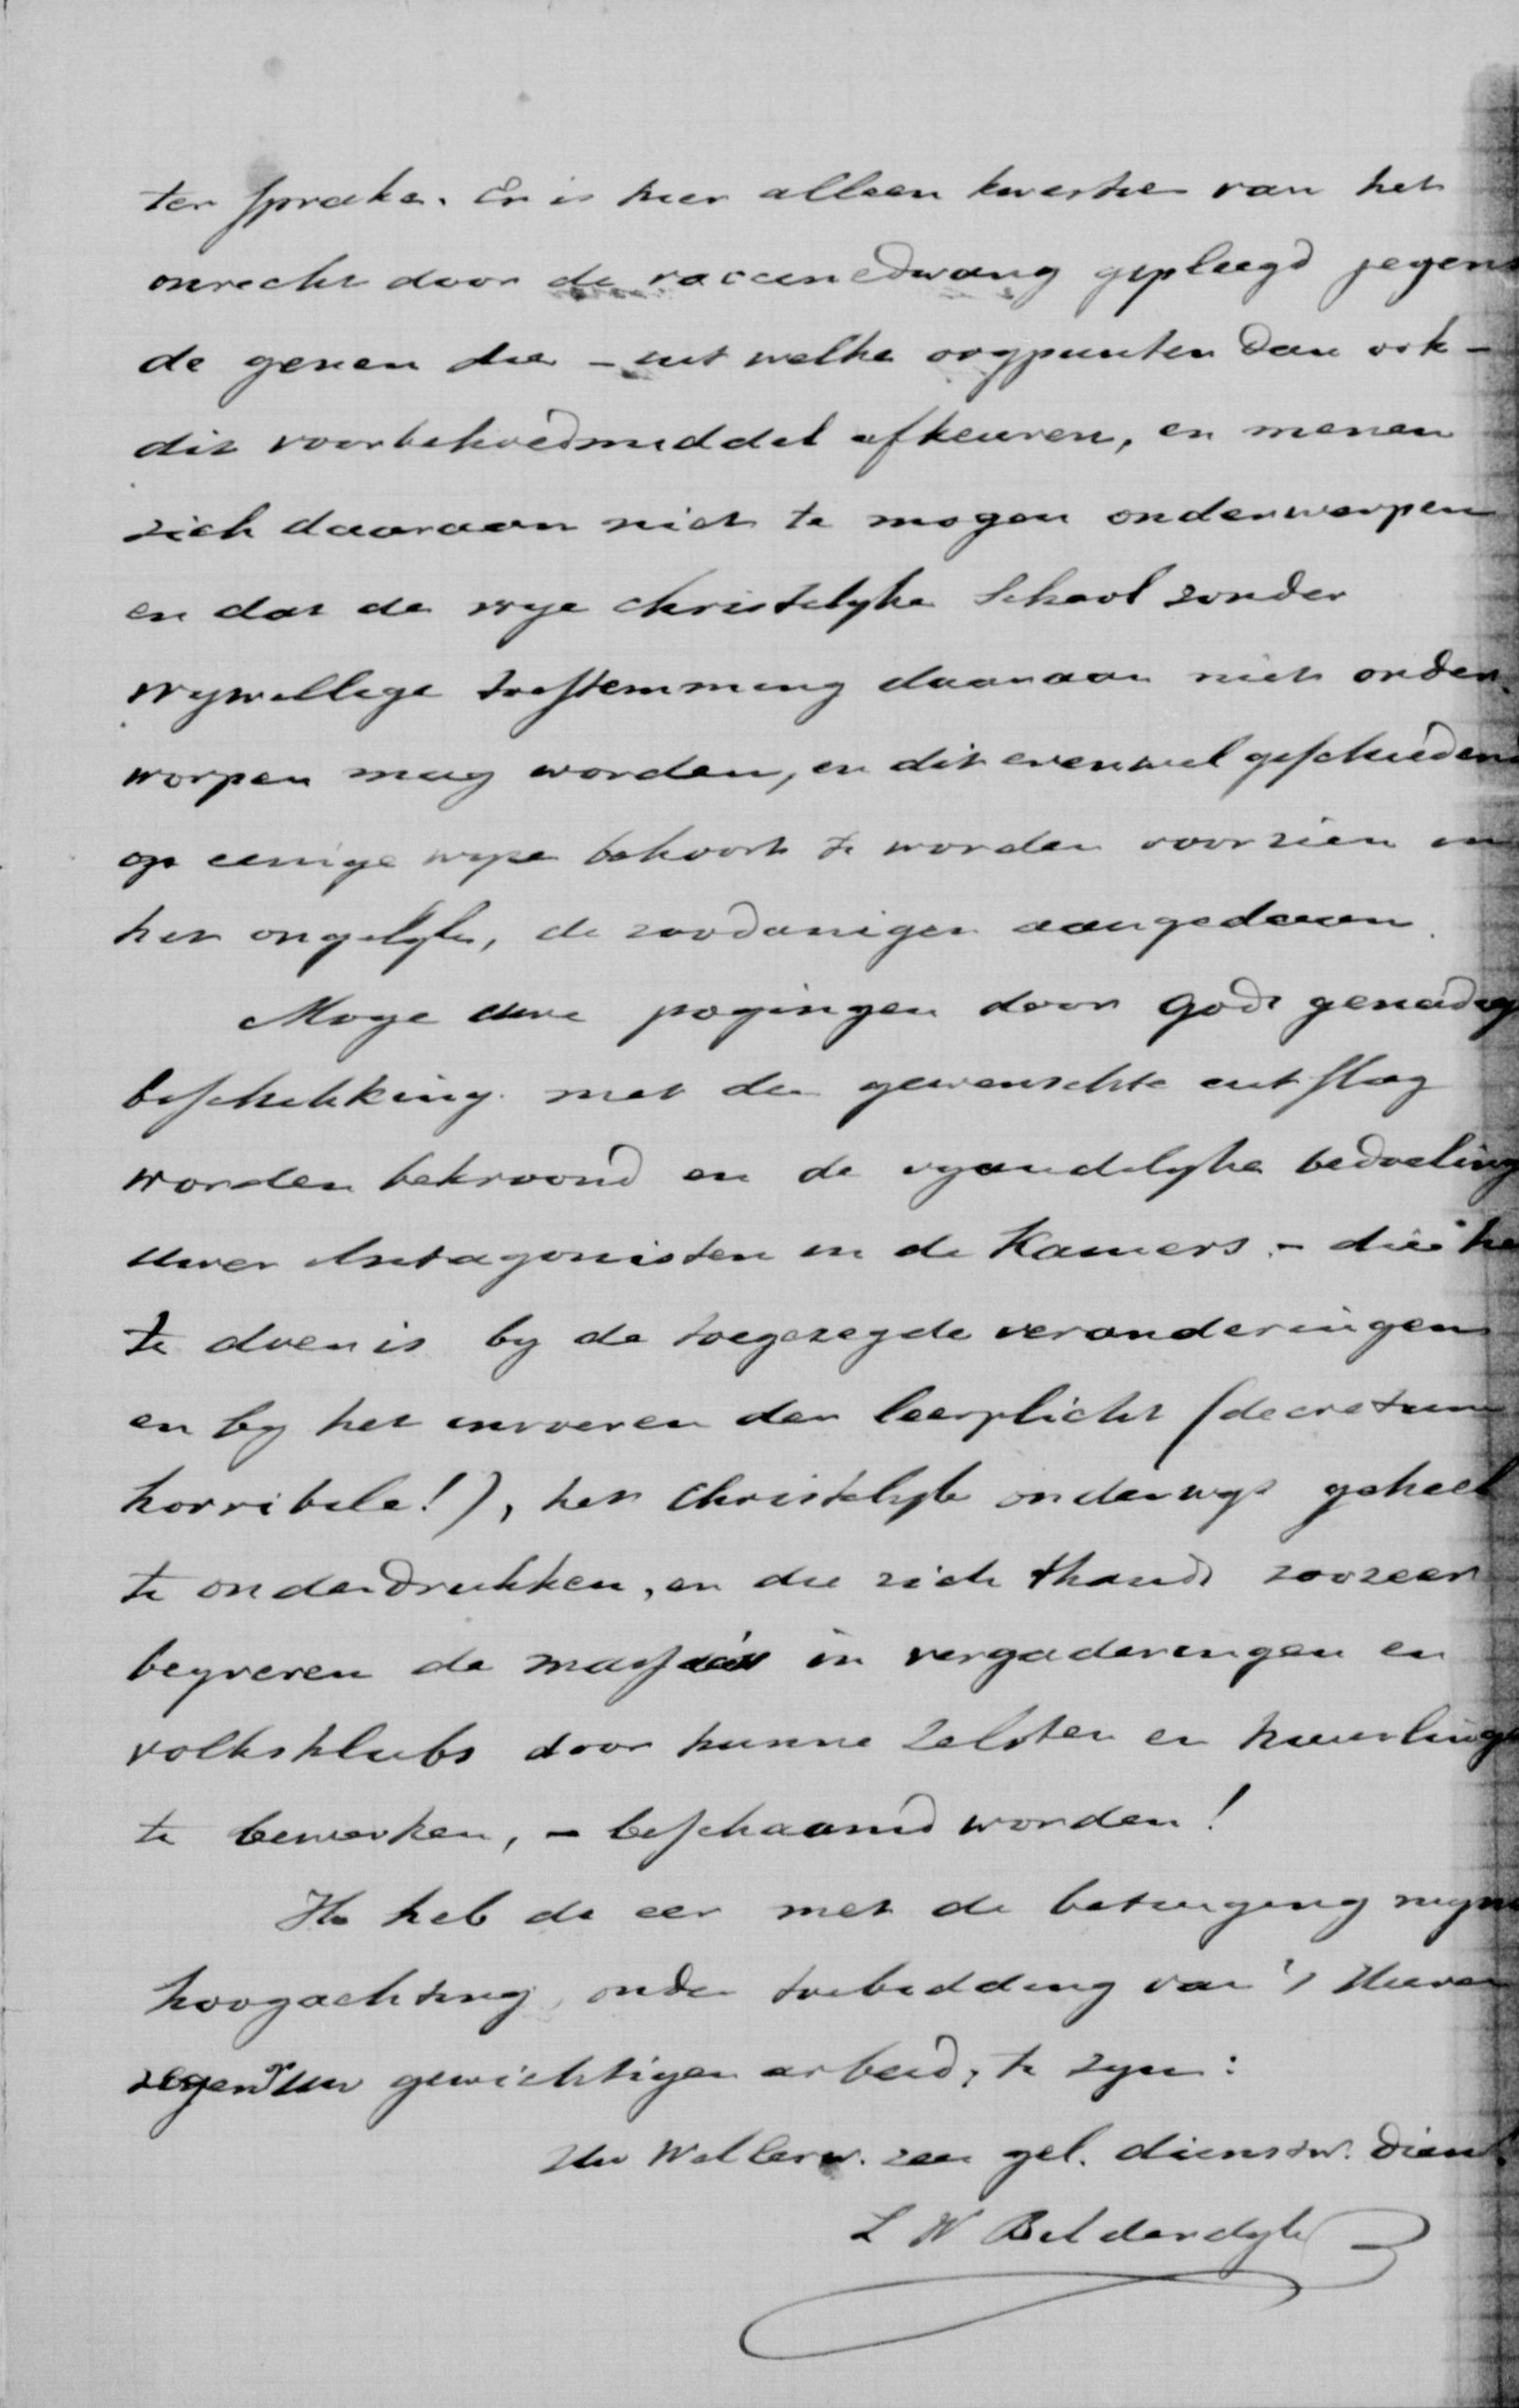 ter sprake. Er is hier alleen kwestie van het
onrecht door de vaccinedwang gepleegd jegens
de genen die – uit welke oogpunten dan ook –
dit voorbehoedmiddel afkeuren, en menen
zich daaraan niet te mogen onderwerpen
en dat de vrye christelyke School zonder
vrywillige toestemming daaraan niet onder-
worpen mag worden, en dit evenwel geschiedend
op eenige wyze behoort te worden voorzien in
het ongelyk, de zoodanigen aangedaan.
Moge uwe pogingen door Gods genadige
beschikking met den gewenschte uitslag
worden bekroond en de vyandelyke bedoeling
uwer Antagonisten in de Kamers – die het
te doen is by de toegezegde veranderingen
en by het invoeren der leerplicht (decretum
horribile!), het Christelyk onderwys geheel
te onderdrukken, en die zich thands zoozeer
beyveren de massa's in vergaderingen en
volksklubs door hunne Zeloten en huurlingen
te bewerken, – beschaamd worden!
Ik heb de eer met de betuiging myner
hoogachting, onder toebidding van 's Heeren
zegen op uw gewichtigen arbeid, te zyn:
Uw WelEerw. zeer gel. dienstw. Dien<sup>r</sup>.
L W Bilderdyk